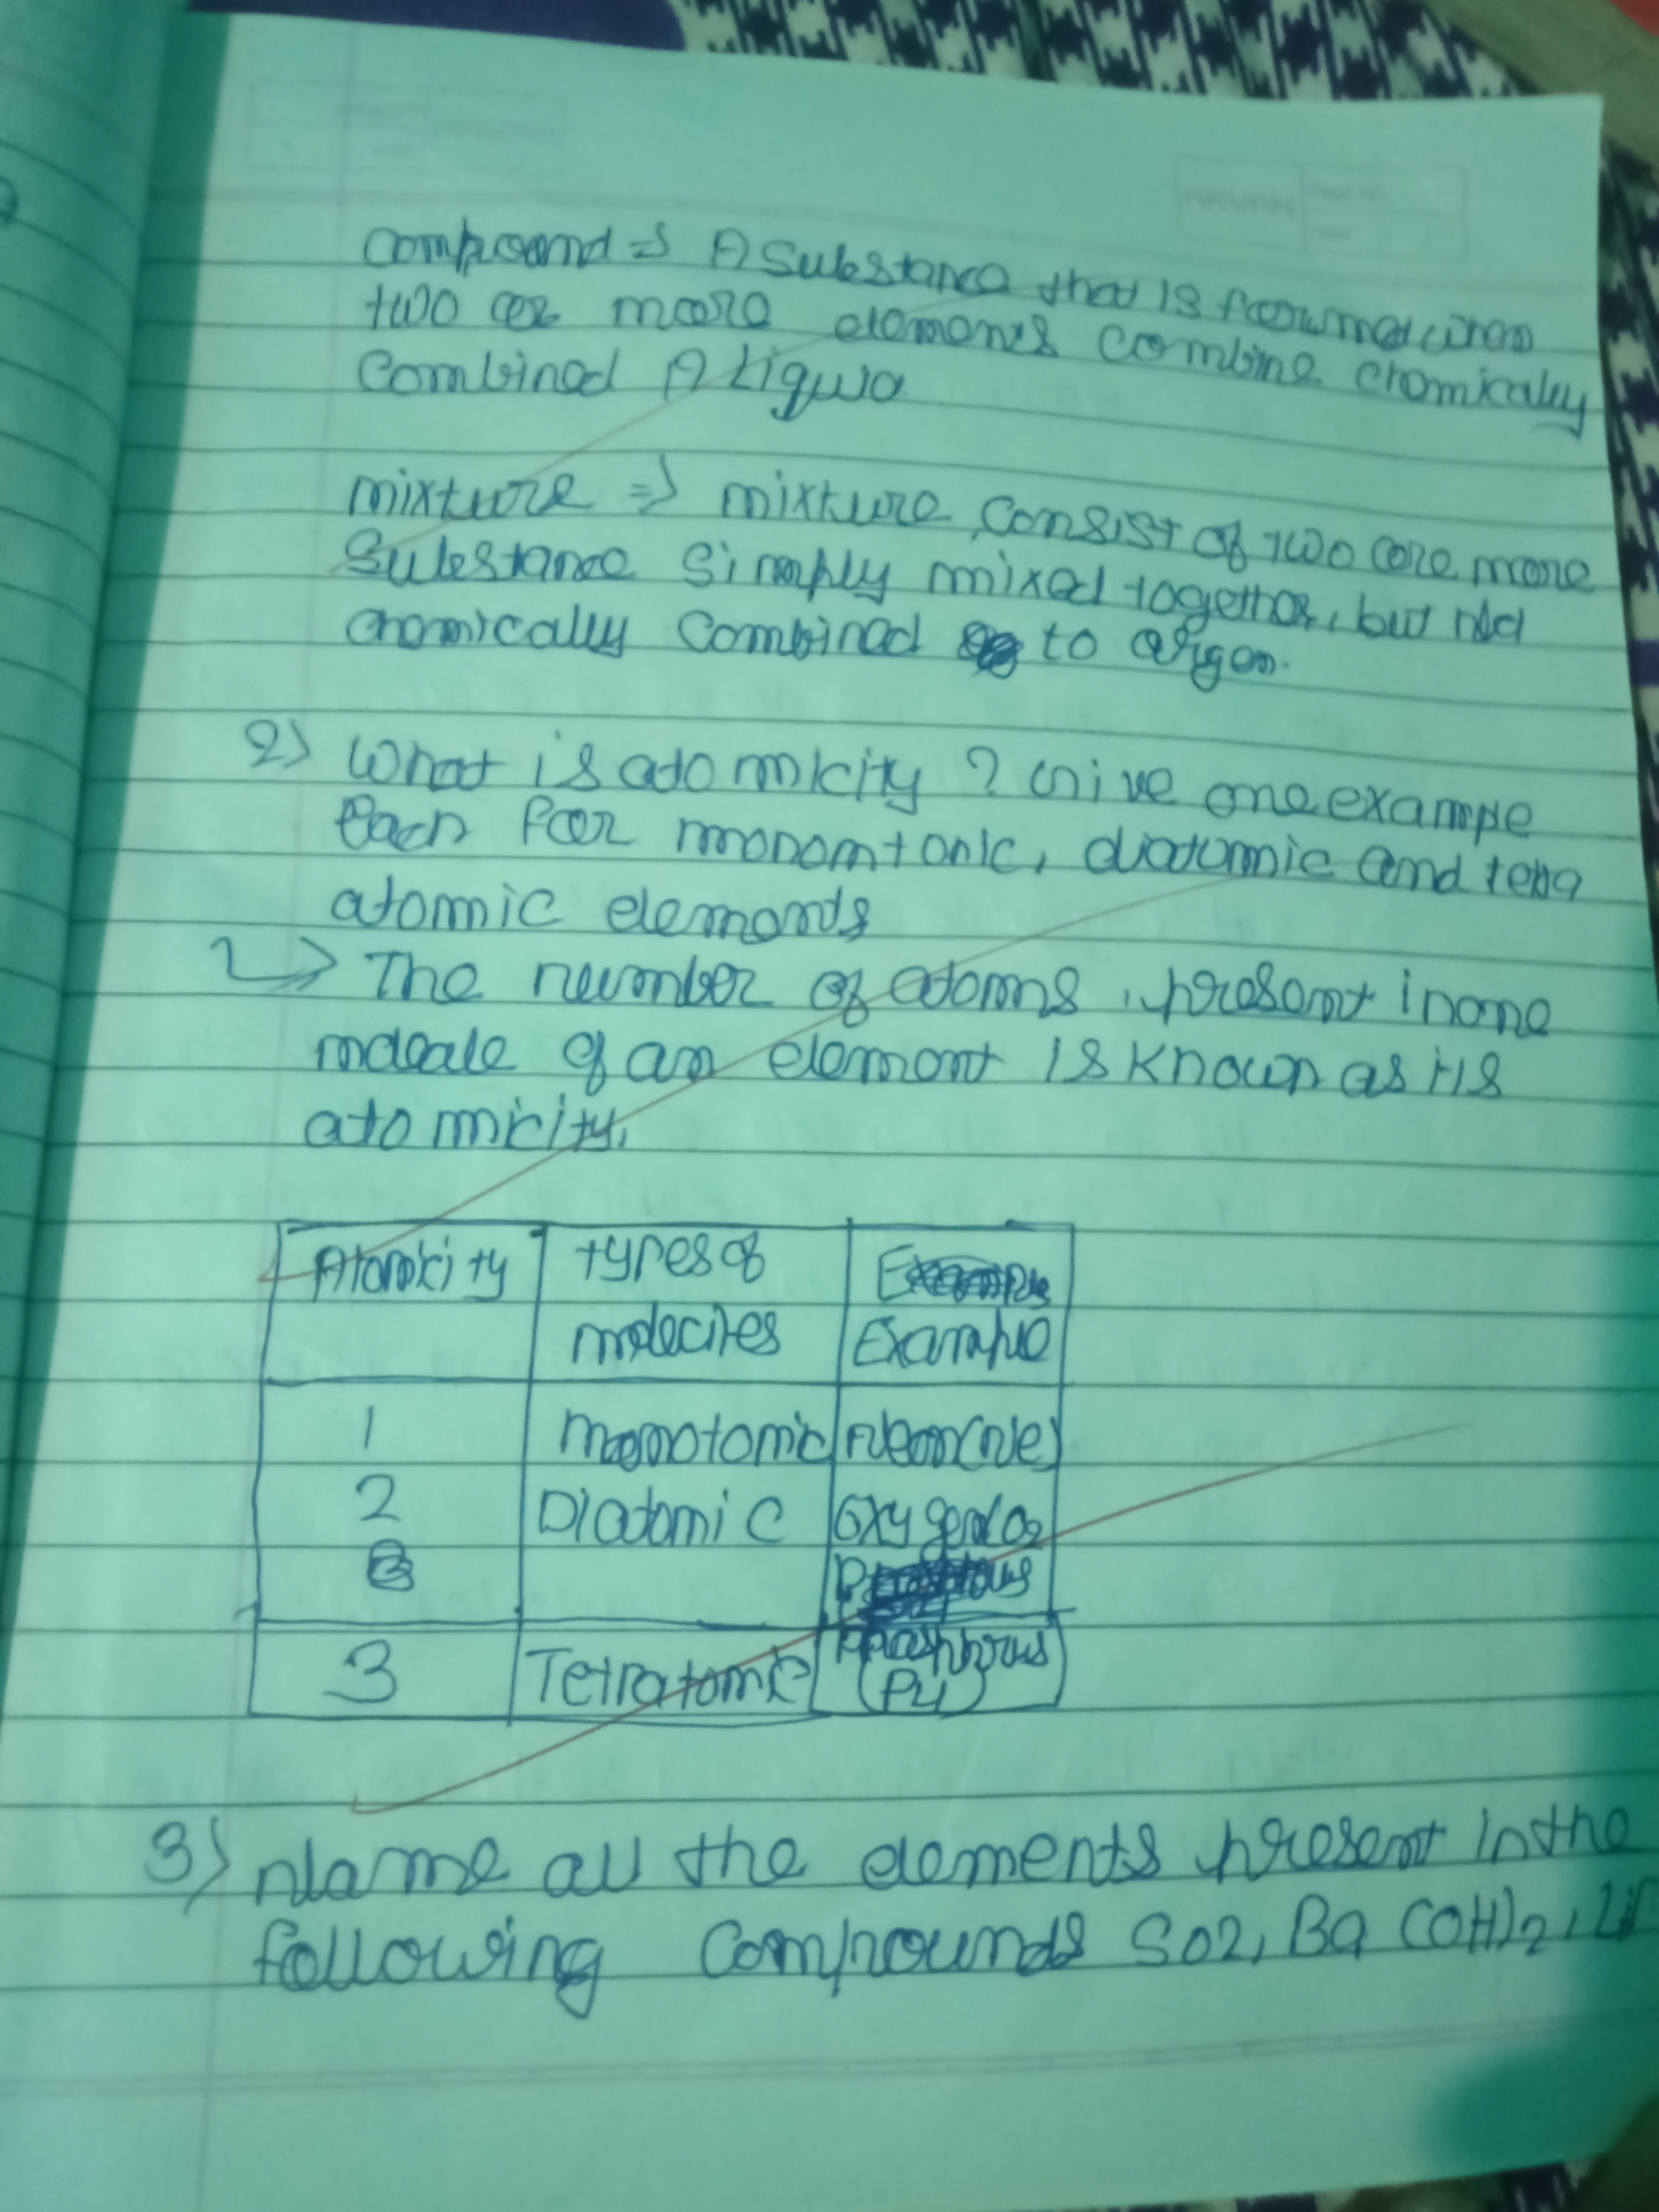 compound => A substance that is formed when
two or more elements combine chemically
combined A Liquid
mixture => mixture consist of two core more
substance simply mixed together, but not
chemically combined to
2) What is atomicity ? Give one example
each for monomtonic, diatomic and tetra
atomic elements
The number of atoms, present in one
molecule of an element is known as its
atomicity.
Atomicity types of Example
molecites
1 Monotomic Neon(Ne)
2 Diatomic Oxygen(O2
3 Tetratomic Phosphorus
(P4)
3) Name all the elements present in the
following compounds SO2, Ba (OH)2,